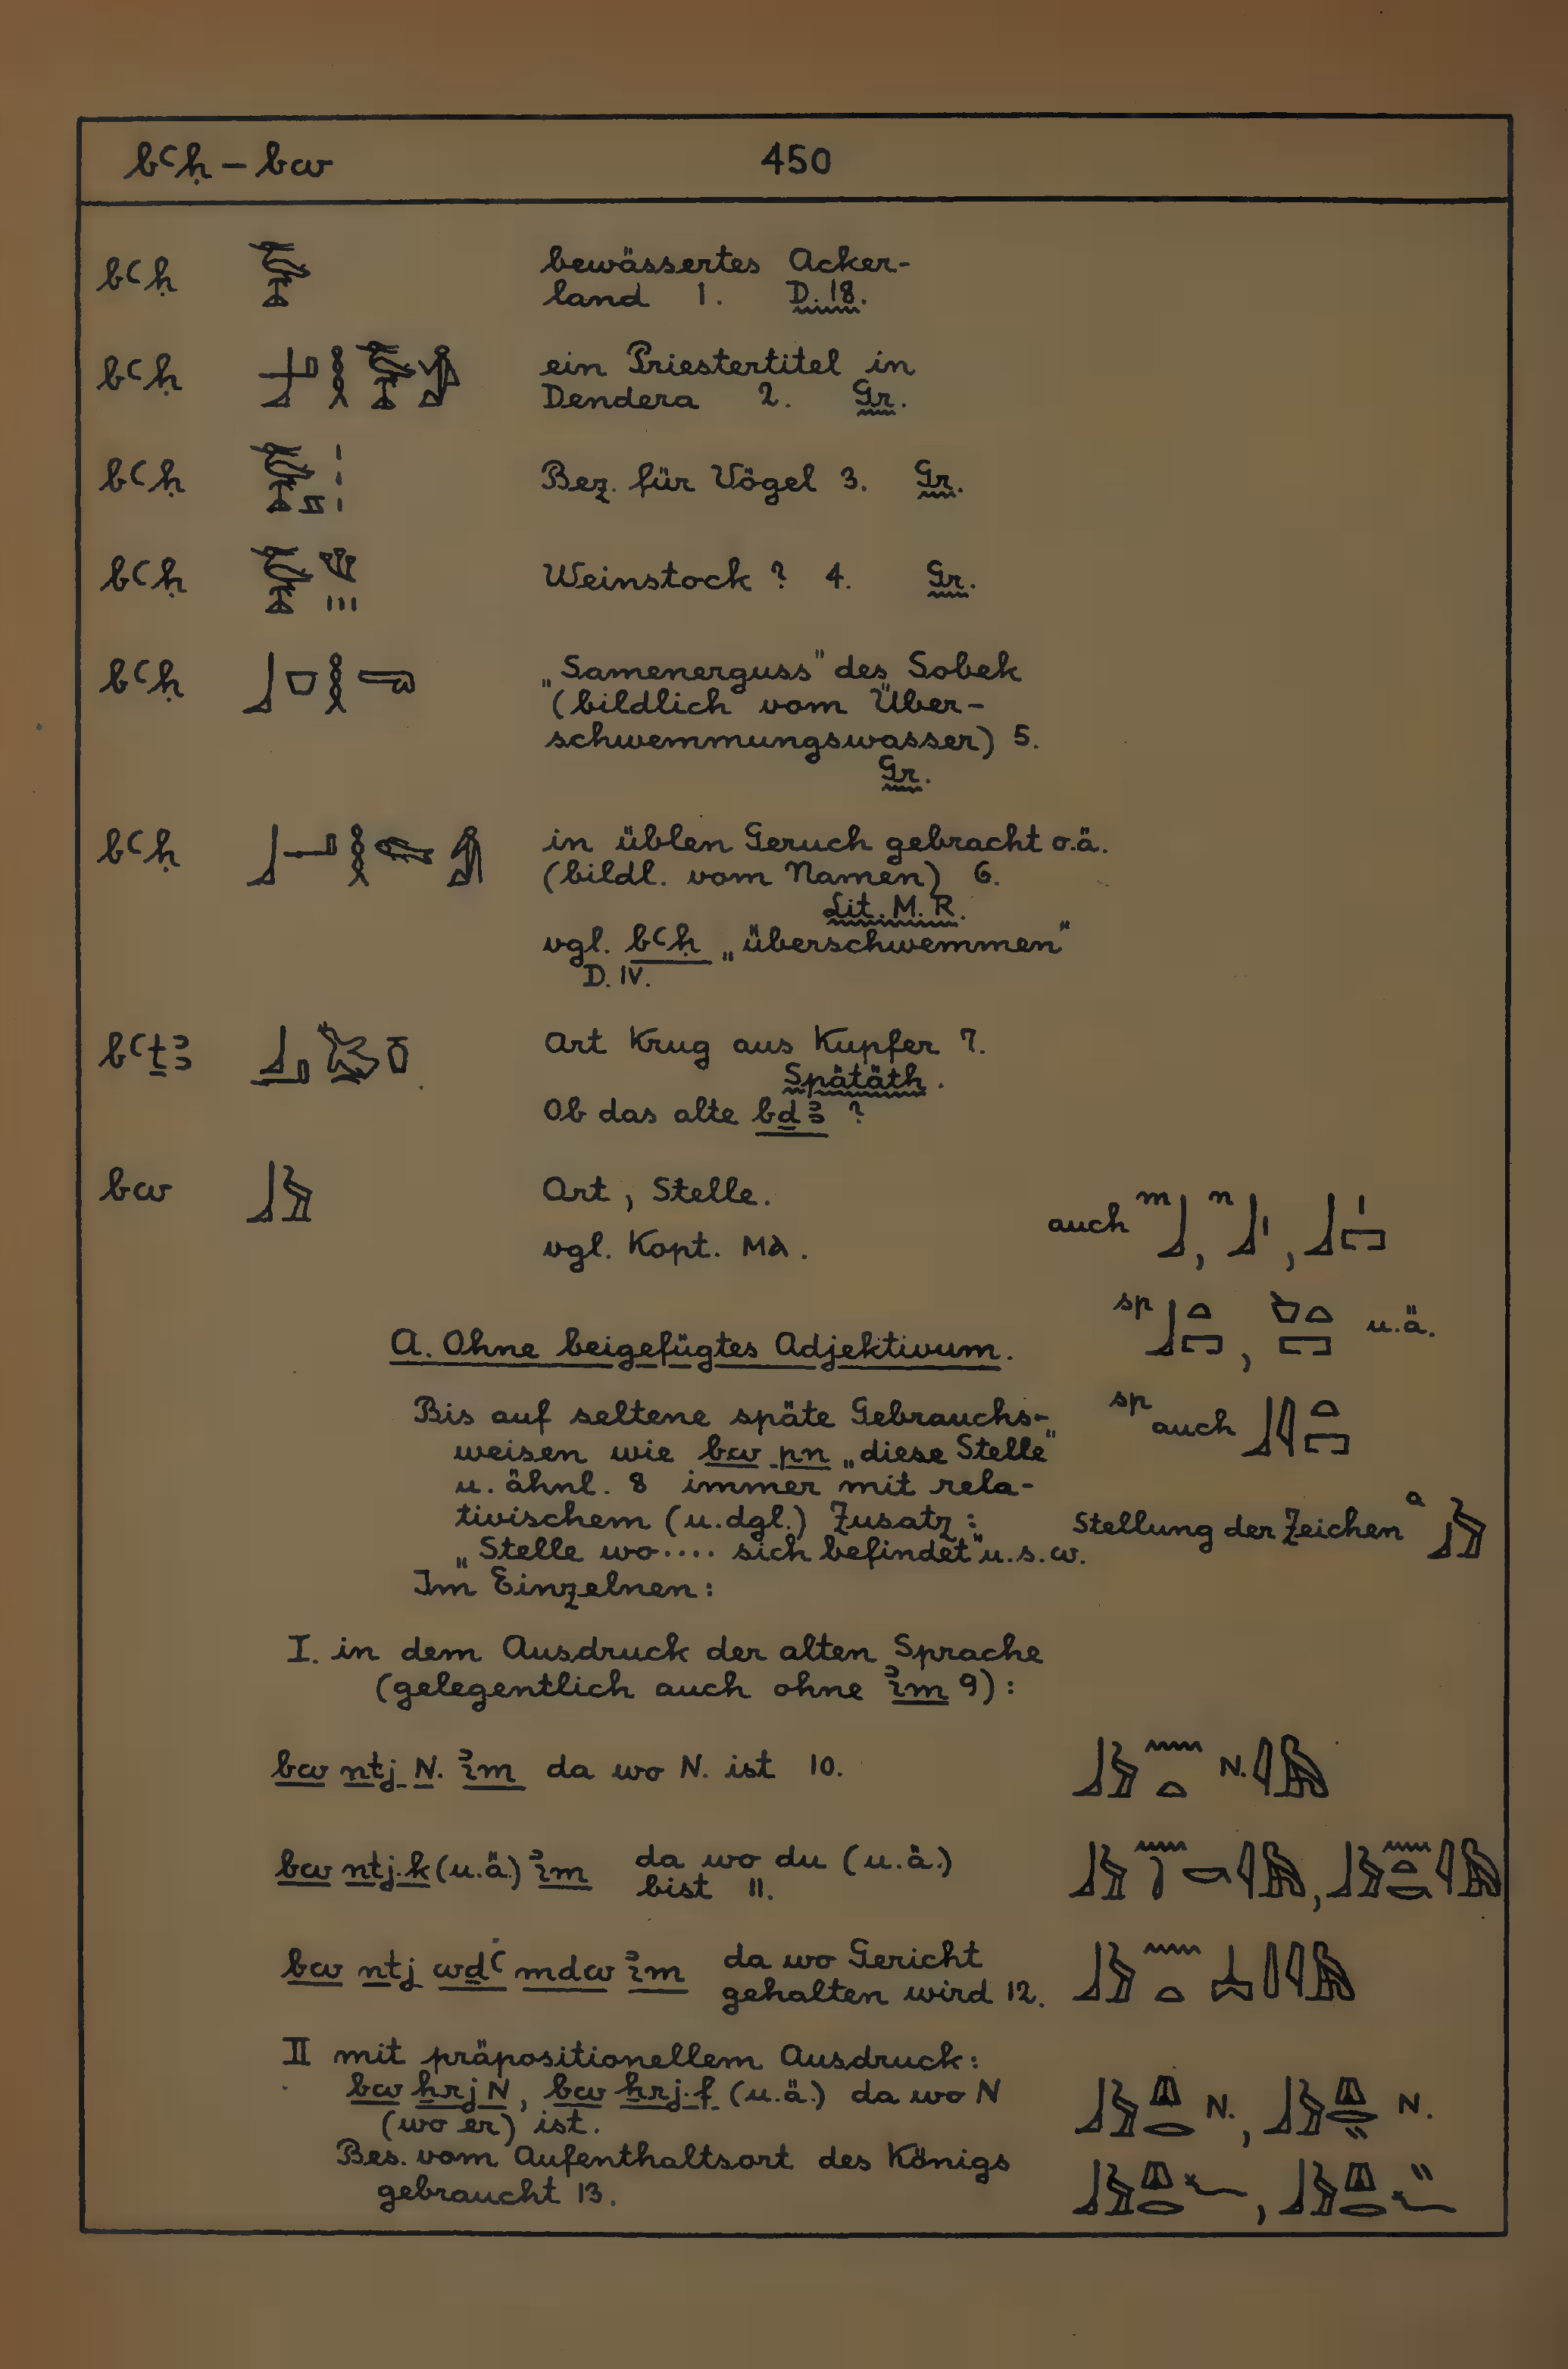 bꜥḥ – bw 450
bꜥḥ bewässertes Acker-
land 1. D. 18.
bꜥḥ ein Priestertitel in
Dendera 2. Gr.
bꜥḥ Bez. für Vögel 3. Gr.
bꜥḥ Weinstock ? 4. Gr.
bꜥḥ „Samenerguss" des Sobek
(bildlich vom Über-
schwemmungswasser) 5.
Gr.
bꜥḥ in üblen Geruch gebracht o.ä.
(bildl. vom Namen) 6.
Lit. M. R.
vgl. bꜥḥ „überschwemmen"
D. IV.
bꜥṯꜣ Art Krug aus Kupfer 7.
Spätäth.
Ob das alte bḏꜣ ?
bw Ort, Stelle.
vgl. Kopt. ⲙⲁ.
auch m , n ,
sp , u.ä.
A. Ohne beigefügtes Adjektivum.
sp auch
Bis auf seltene späte Gebrauchs-
weisen wie bw pn „diese Stelle"
u. ähnl. 8 immer mit rela-
tivischem (u.dgl.) Zusatz:
„Stelle wo.... sich befindet" u.s.w.
Stellung der Zeichen a
Im Einzelnen:
I. in dem Ausdruck der alten Sprache
(gelegentlich auch ohne ꞽm 9):
bw ntj N. ꞽm da wo N. ist 10. N.
bw ntj.k (u.ä.) ꞽm da wo du (u.ä.)
bist 11.
bw ntj wḏꜥ mdw ꞽm da wo Gericht
gehalten wird 12.
II mit präpositionellem Ausdruck:
bw ẖrj N, bw ẖrj.f (u.ä.) da wo N N. , N.
(wo er) ist.
Bes. vom Aufenthaltsort des Königs
gebraucht 13.